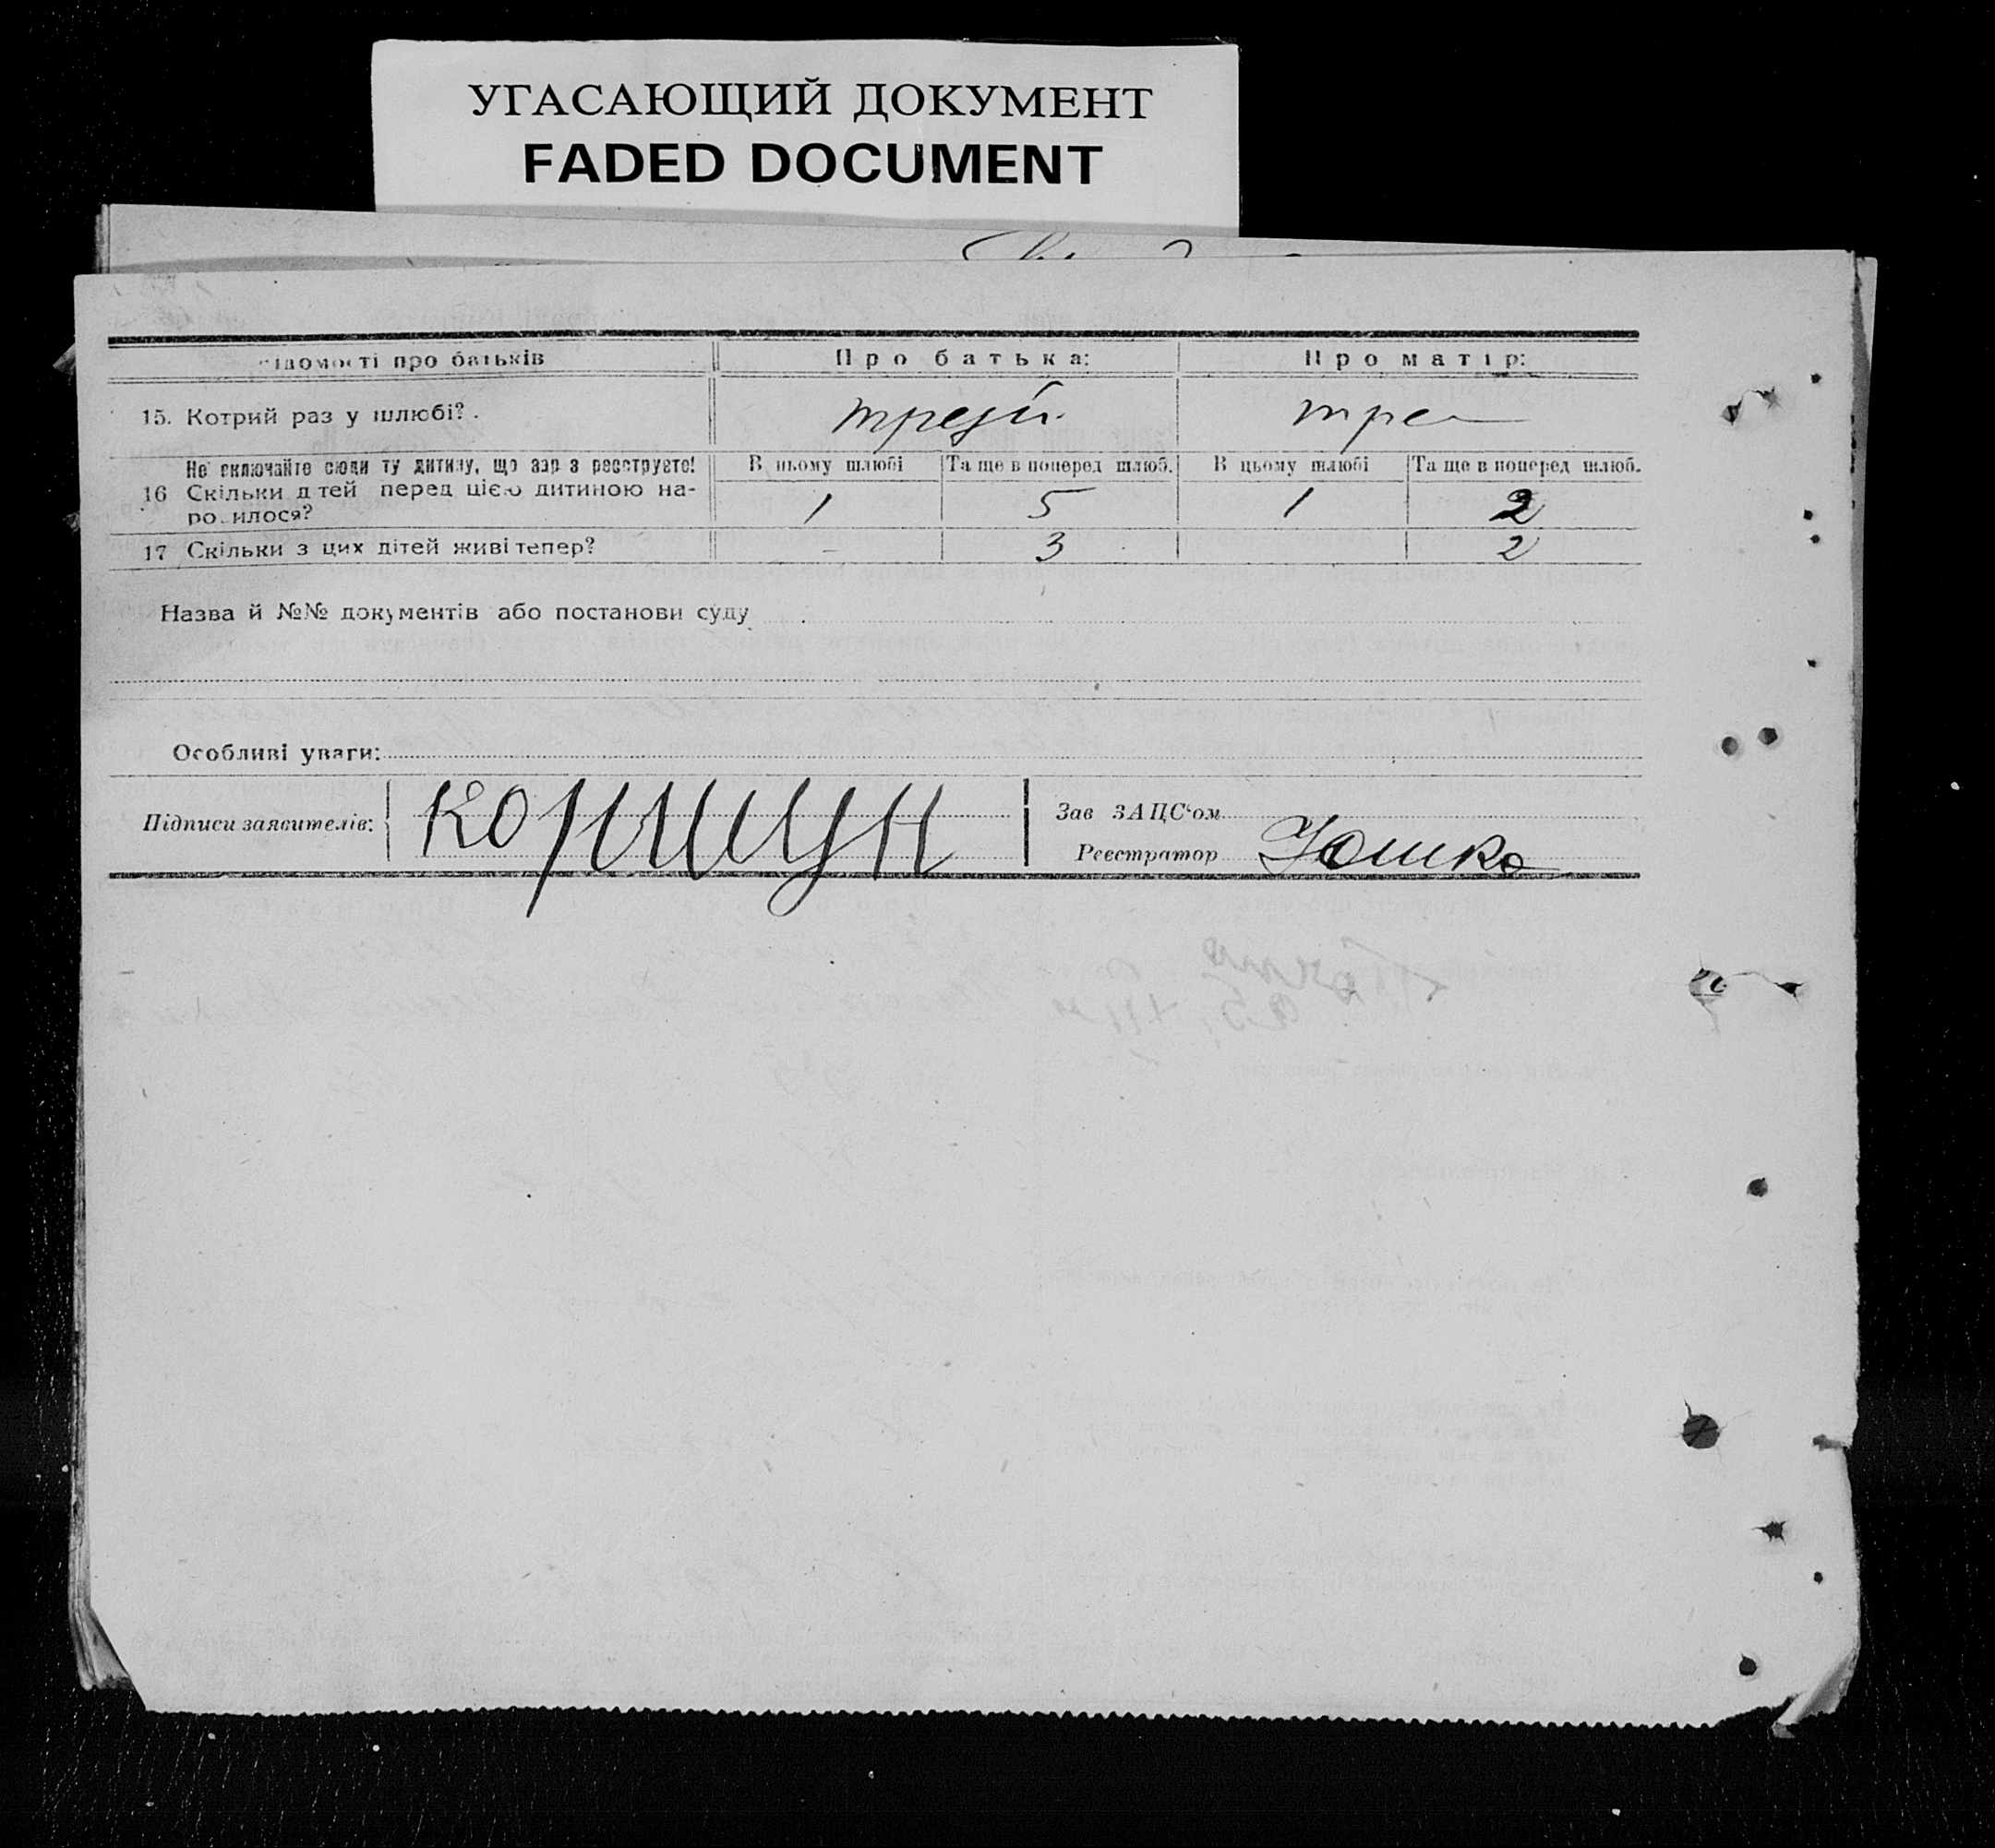 УГАСАЮЩИЙ ДОКУМЕНТ
FADED DOCUMENT
ідомості про батьків Про батька: Про матір:
15. Котрий раз у шлюбі?. трезій тре
Не включайте сюди ту дитину, що зар з реєструєте! В цьому шлюбі Та ще в поперед шлюб. В цьому шлюбі Та ще в поперед шлюб.
16 Скільки д тей перед цією дитиною на-
ро илося? 1 5 1 2
17 Скільки з цих дітей живі тепер? - 3 2
Назва й №№ документів або постанови суду
Особливі уваги:
Підписи заявителів: Коршун Зав ЗАЦС‘ом
Реєстратор Юшко